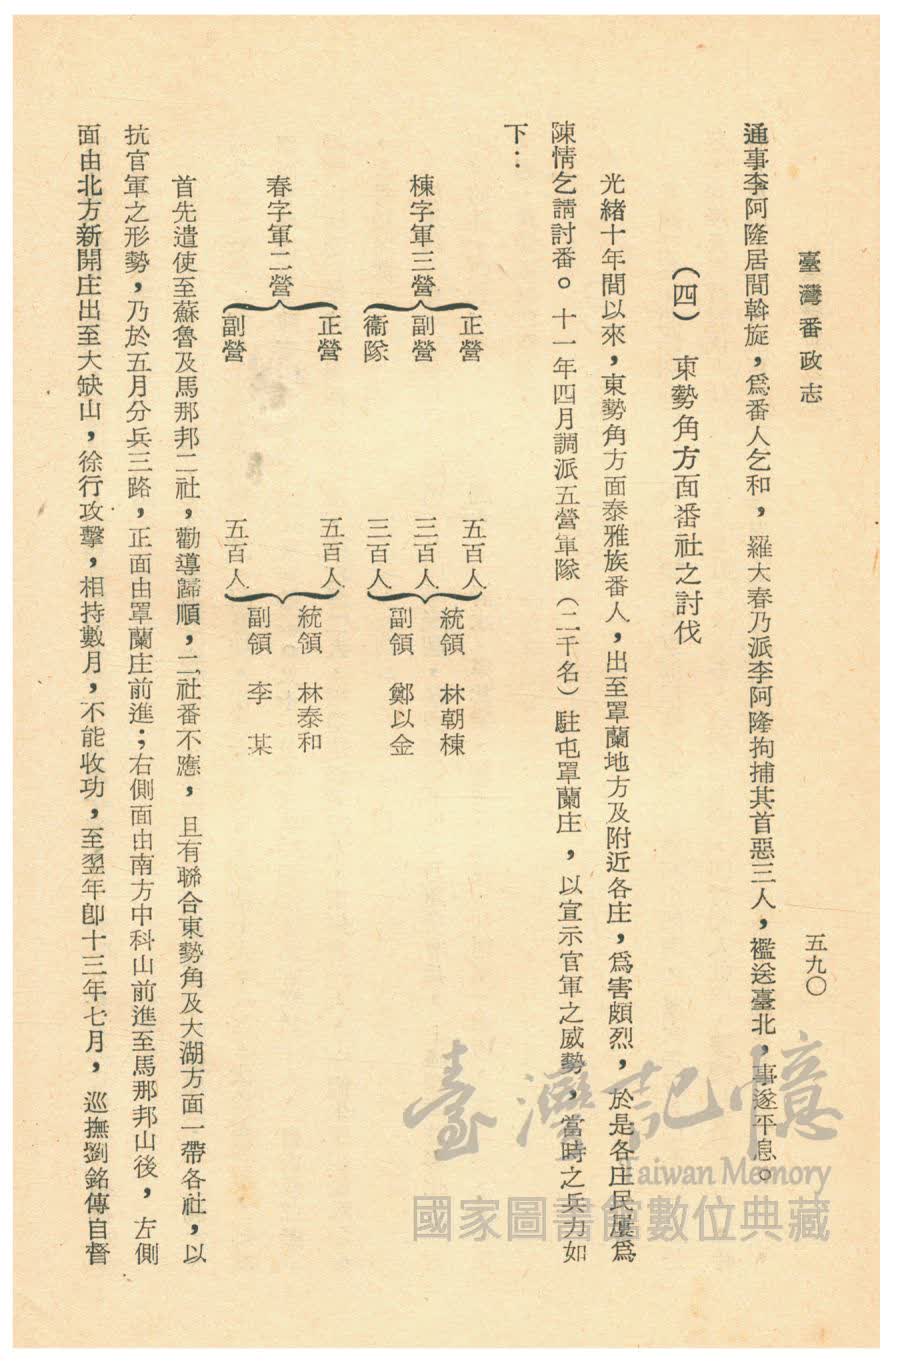 臺灣番政志
五九〇
通事李阿隆居間斡旋，爲番人乞和，羅大春乃派李阿隆拘捕其首惡三人，襤送臺北，事遂平息。
（四） 東勢角方面番社之討伐
光緒十年間以來，東勢角方面泰雅族番人，出至罩蘭地方及附近各庄，爲害頗烈，於是各庄民屢爲
陳情乞請討番。十一年四月調派五營軍隊（二千名）駐屯罩蘭庄，以宣示官軍之威勢，當時之兵力如
下：
棟字軍三營
正營 五百人
副營 三百人
衞隊 三百人
統領 林朝棟
副領 鄭以金
春字軍二營
正營 五百人
副營 五百人
統領 林泰和
副領 李 某
首先遣使至蘇魯及馬那邦二社，勸導歸順，二社番不應，且有聯合東勢角及大湖方面一帶各社，以
抗官軍之形勢，乃於五月分兵三路，正面由罩蘭庄前進；右側面由南方中科山前進至馬那邦山後，左側
面由北方新開庄出至大缺山，徐行攻擊，相持數月，不能收功，至翌年卽十三年七月，巡撫劉銘傳自督
臺灣記憶
Taiwan Memory
國家圖書館數位典藏